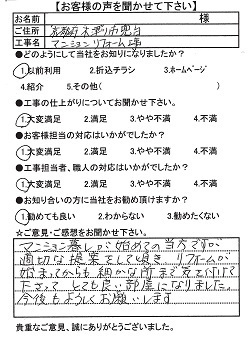 【お客様の声を聞かせて下さい】
お名前 様
ご住所 京都府木津川市兜台
工事名 マンションリフォーム工事
●どのようにして当社をお知りになりましたか？
1.以前利用 2.折込チラシ 3.ホームページ
4.紹介 5.その他( )
●工事の仕上がりについてお聞かせ下さい。
1.大変満足 2.満足 3.やや不満 4.不満
●お客様担当の対応はいかがでしたか？
1.大変満足 2.満足 3.やや不満 4.不満
●工事担当者、職人の対応はいかがでしたか？
1.大変満足 2.満足 3.やや不満 4.不満
●お知り合いの方に当社をお勧め頂けますか？
1.勧めても良い 2.わからない 3.勧めたくない
☆ご意見・ご感想をお聞かせ下さい。
マンション暮しが始めての当方ですが
適切な提案をして頂き リフォームが
始まってからも細かな所まで気を付けて
下さって とても良い部屋になりました。
今後もよろしくお願いします
貴重なご意見、誠にありがとうございました。